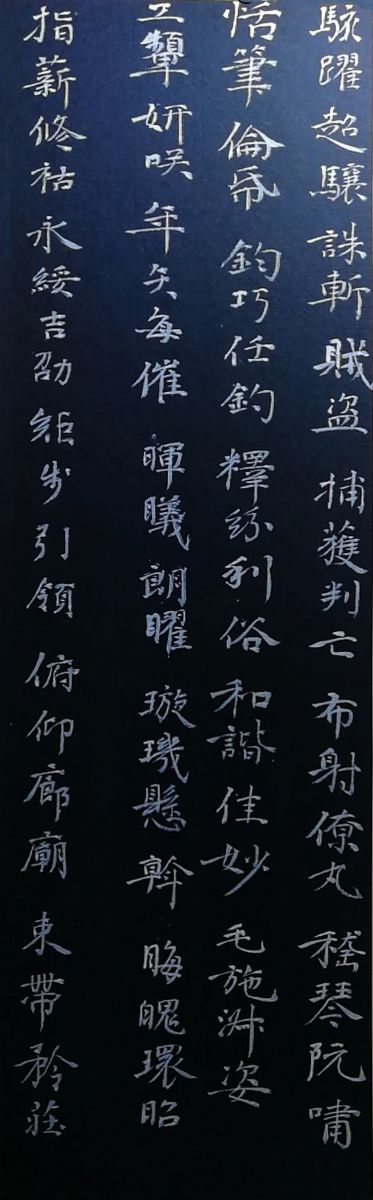 駭躍超驤 誅斬賊盜 捕獲判亡 布射僚丸 嵇琴阮嘯
恬筆倫帋 鈞巧任釣 釋紛利俗 和諧佳妙 毛施淑姿
工顰妍咲 年矢每催 暉曦朗曜 璇璣懸斡 晦魄環昭
指薪修祜 永綏吉劭 矩步引領 俯仰廊廟 束帶矜莊